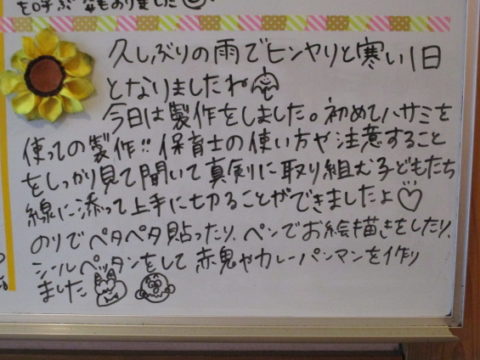 を呼ぶ姿もありました
久しぶりの雨でヒンヤリと寒い1日
となりましたね
今日は製作をしました。初めてハサミを
使っての製作!!保育士の使い方や注意すること
をしっかり見て聞いて真剣に取り組む子どもたち
線に添って上手に切ることができましたよ♡
のりでペタペタ貼ったり、ペンでお絵描きをしたり、
シールペッタンをして赤鬼やカレーパンマンを作り
ました